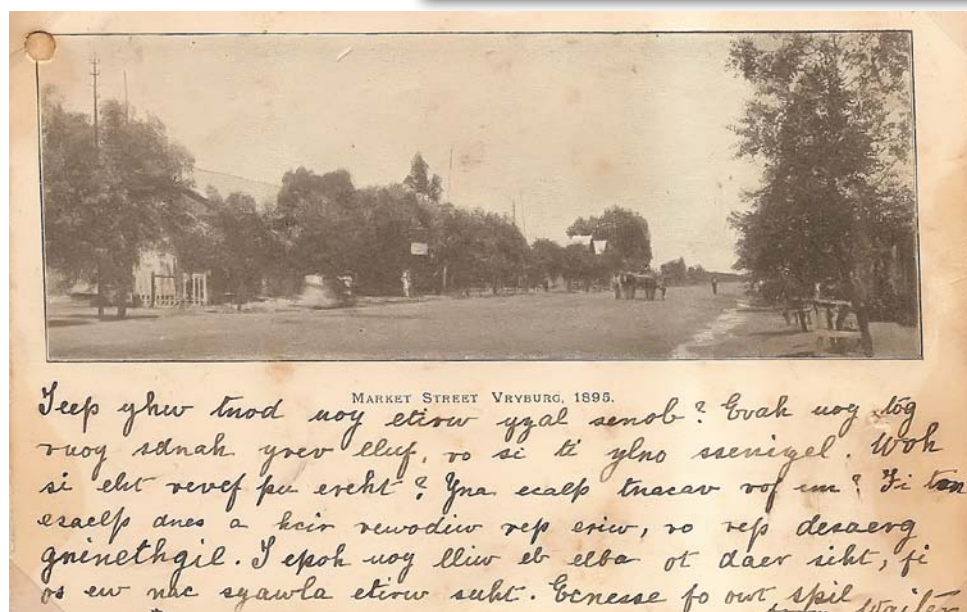 MARKET STREET VRYBURG, 1895.
yhw tnod uoy etirw yzal senob? Evah uoy tog
ruoy sdnah yrev lluf, ro si ti ylno ssenizal. Woh
si eht revef pu ereht? Yna ecalp tnacav rof em? Fi ton
esaelp dnes a hcir rewodiw rep eriw, ro rep desaerg
gninethgil. I epoh uoy lliw eb elba ot daer siht, fi
os ew nac syawla etirw suht. Ecnesse fo owt spil